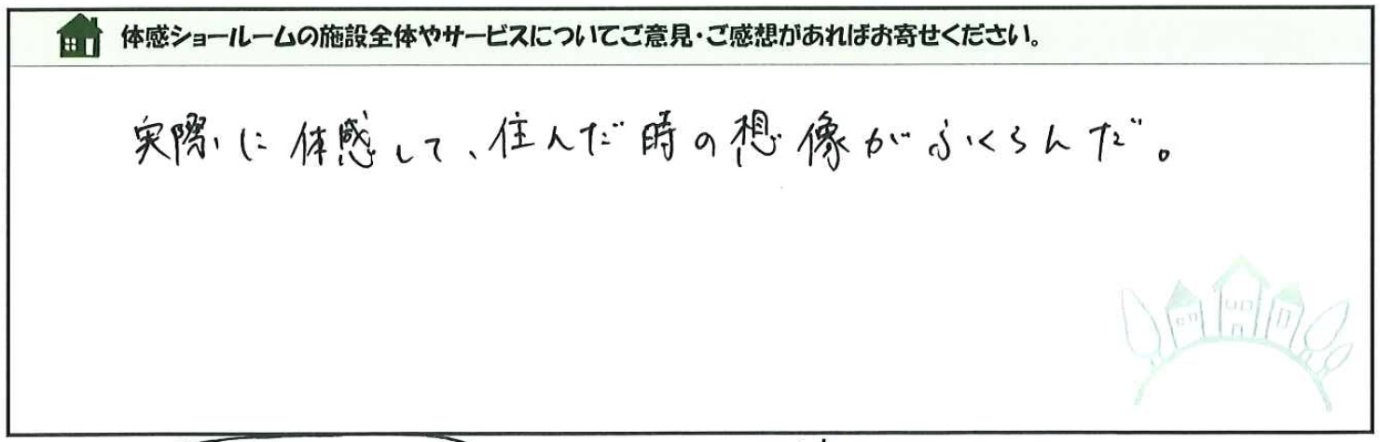 体感ショールームの施設全体やサービスについてご意見・ご感想があればお寄せください。
実際に体感して、住んだ時の想像がふくらんだ。